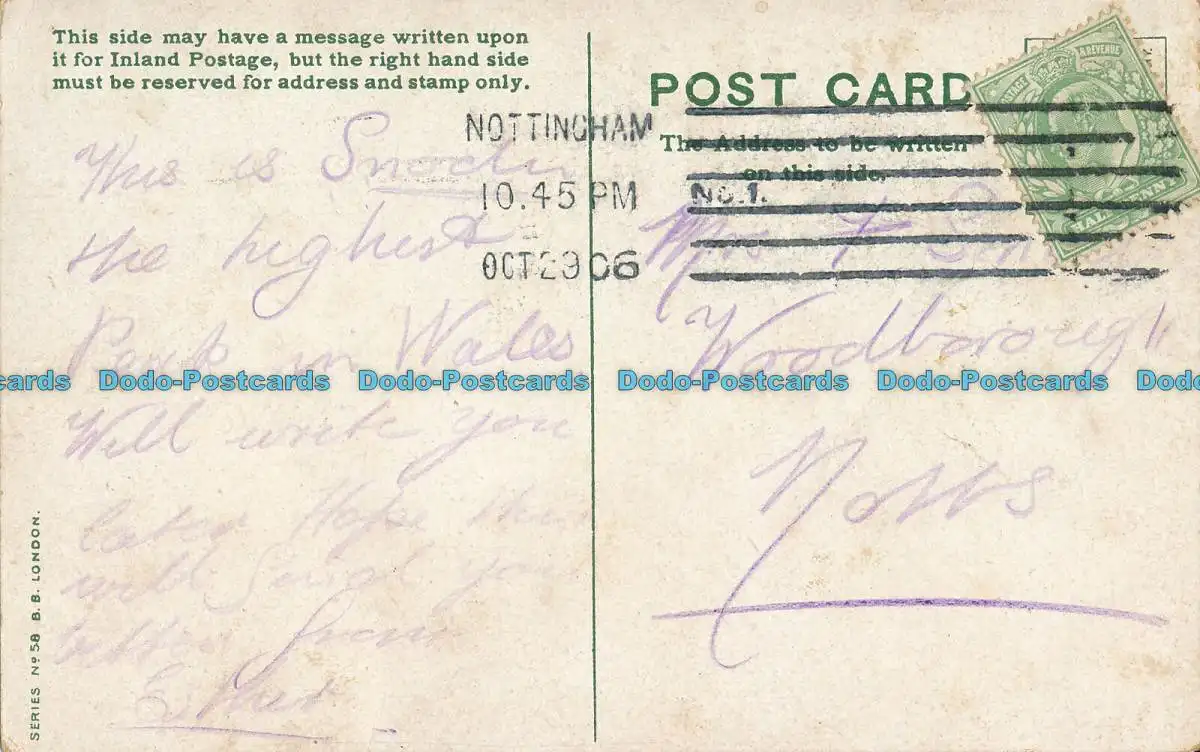 This side may have a message written upon
it for Inland Postage, but the right hand side
must be reserved for address and stamp only.
This is
the highest
Peak in Wales
Will write you
later Hope this
will find you
better from
Esther
SERIES Nº 58 B.B. LONDON.
POST CARD
The Address to be written
on this side.
NOTTINGHAM
10.45 PM
OCT 29 06
No.1.
POSTAGE & REVENUE
HALFPENNY
Mrs F
Woodborough
Notts
cards Dodo-Postcards Dodo-Postcards Dodo-Postcards Dodo-Postcards Dodo